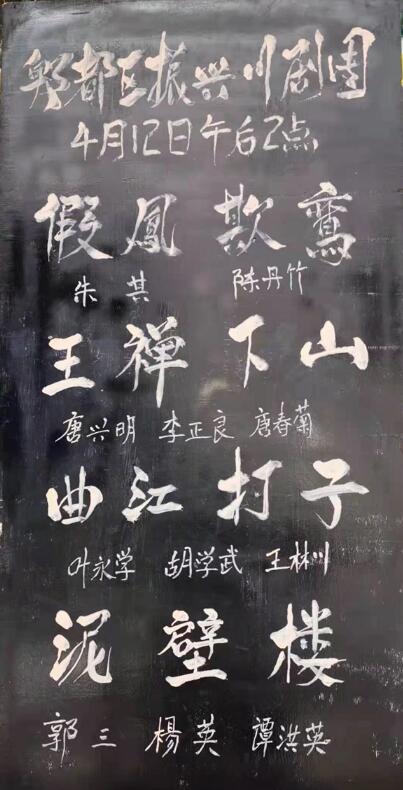 郫都区振兴川剧团
4月12日午后2点
假凤欺鸾
朱其 陈丹竹
王禅下山
唐兴明 李正良 唐春菊
曲江打子
叶永学 胡学武 王林川
泥壁楼
郭三 楊英 谭洪英